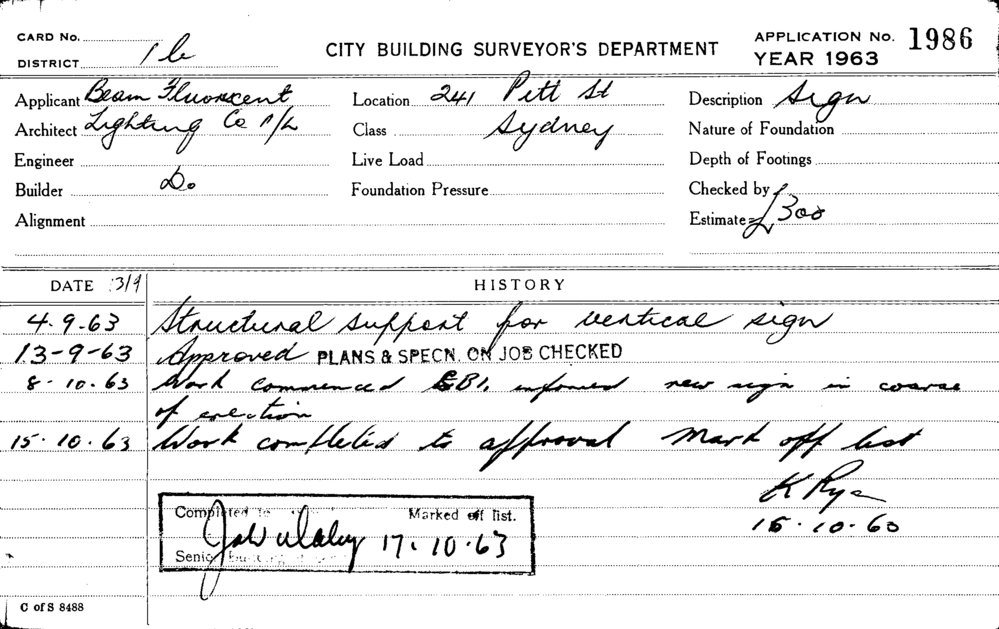 CARD No.
CITY BUILDING SURVEYOR'S DEPARTMENT
APPLICATION No. 1986
DISTRICT 1b
YEAR 1963
Applicant Beam Fluorescent
Location 241 Pitt St
Description Sign
Architect Lighting Co P/L
Class Sydney
Nature of Foundation
Engineer
Live Load
Depth of Footings
Builder Do
Foundation Pressure
Checked by
Alignment
Estimate £300
DATE 3/9
HISTORY
4.9.63 Structural support for vertical sign
13-9-63 Approved PLANS & SPECN. ON JOB CHECKED
8.10.63 Work commenced informed new sign in coarse
of erection
15.10.63 Work completed to approval Mark off list
K Rya
15.10.63
Completed to Marked off list.
17.10.63
Senior
C of S 8488